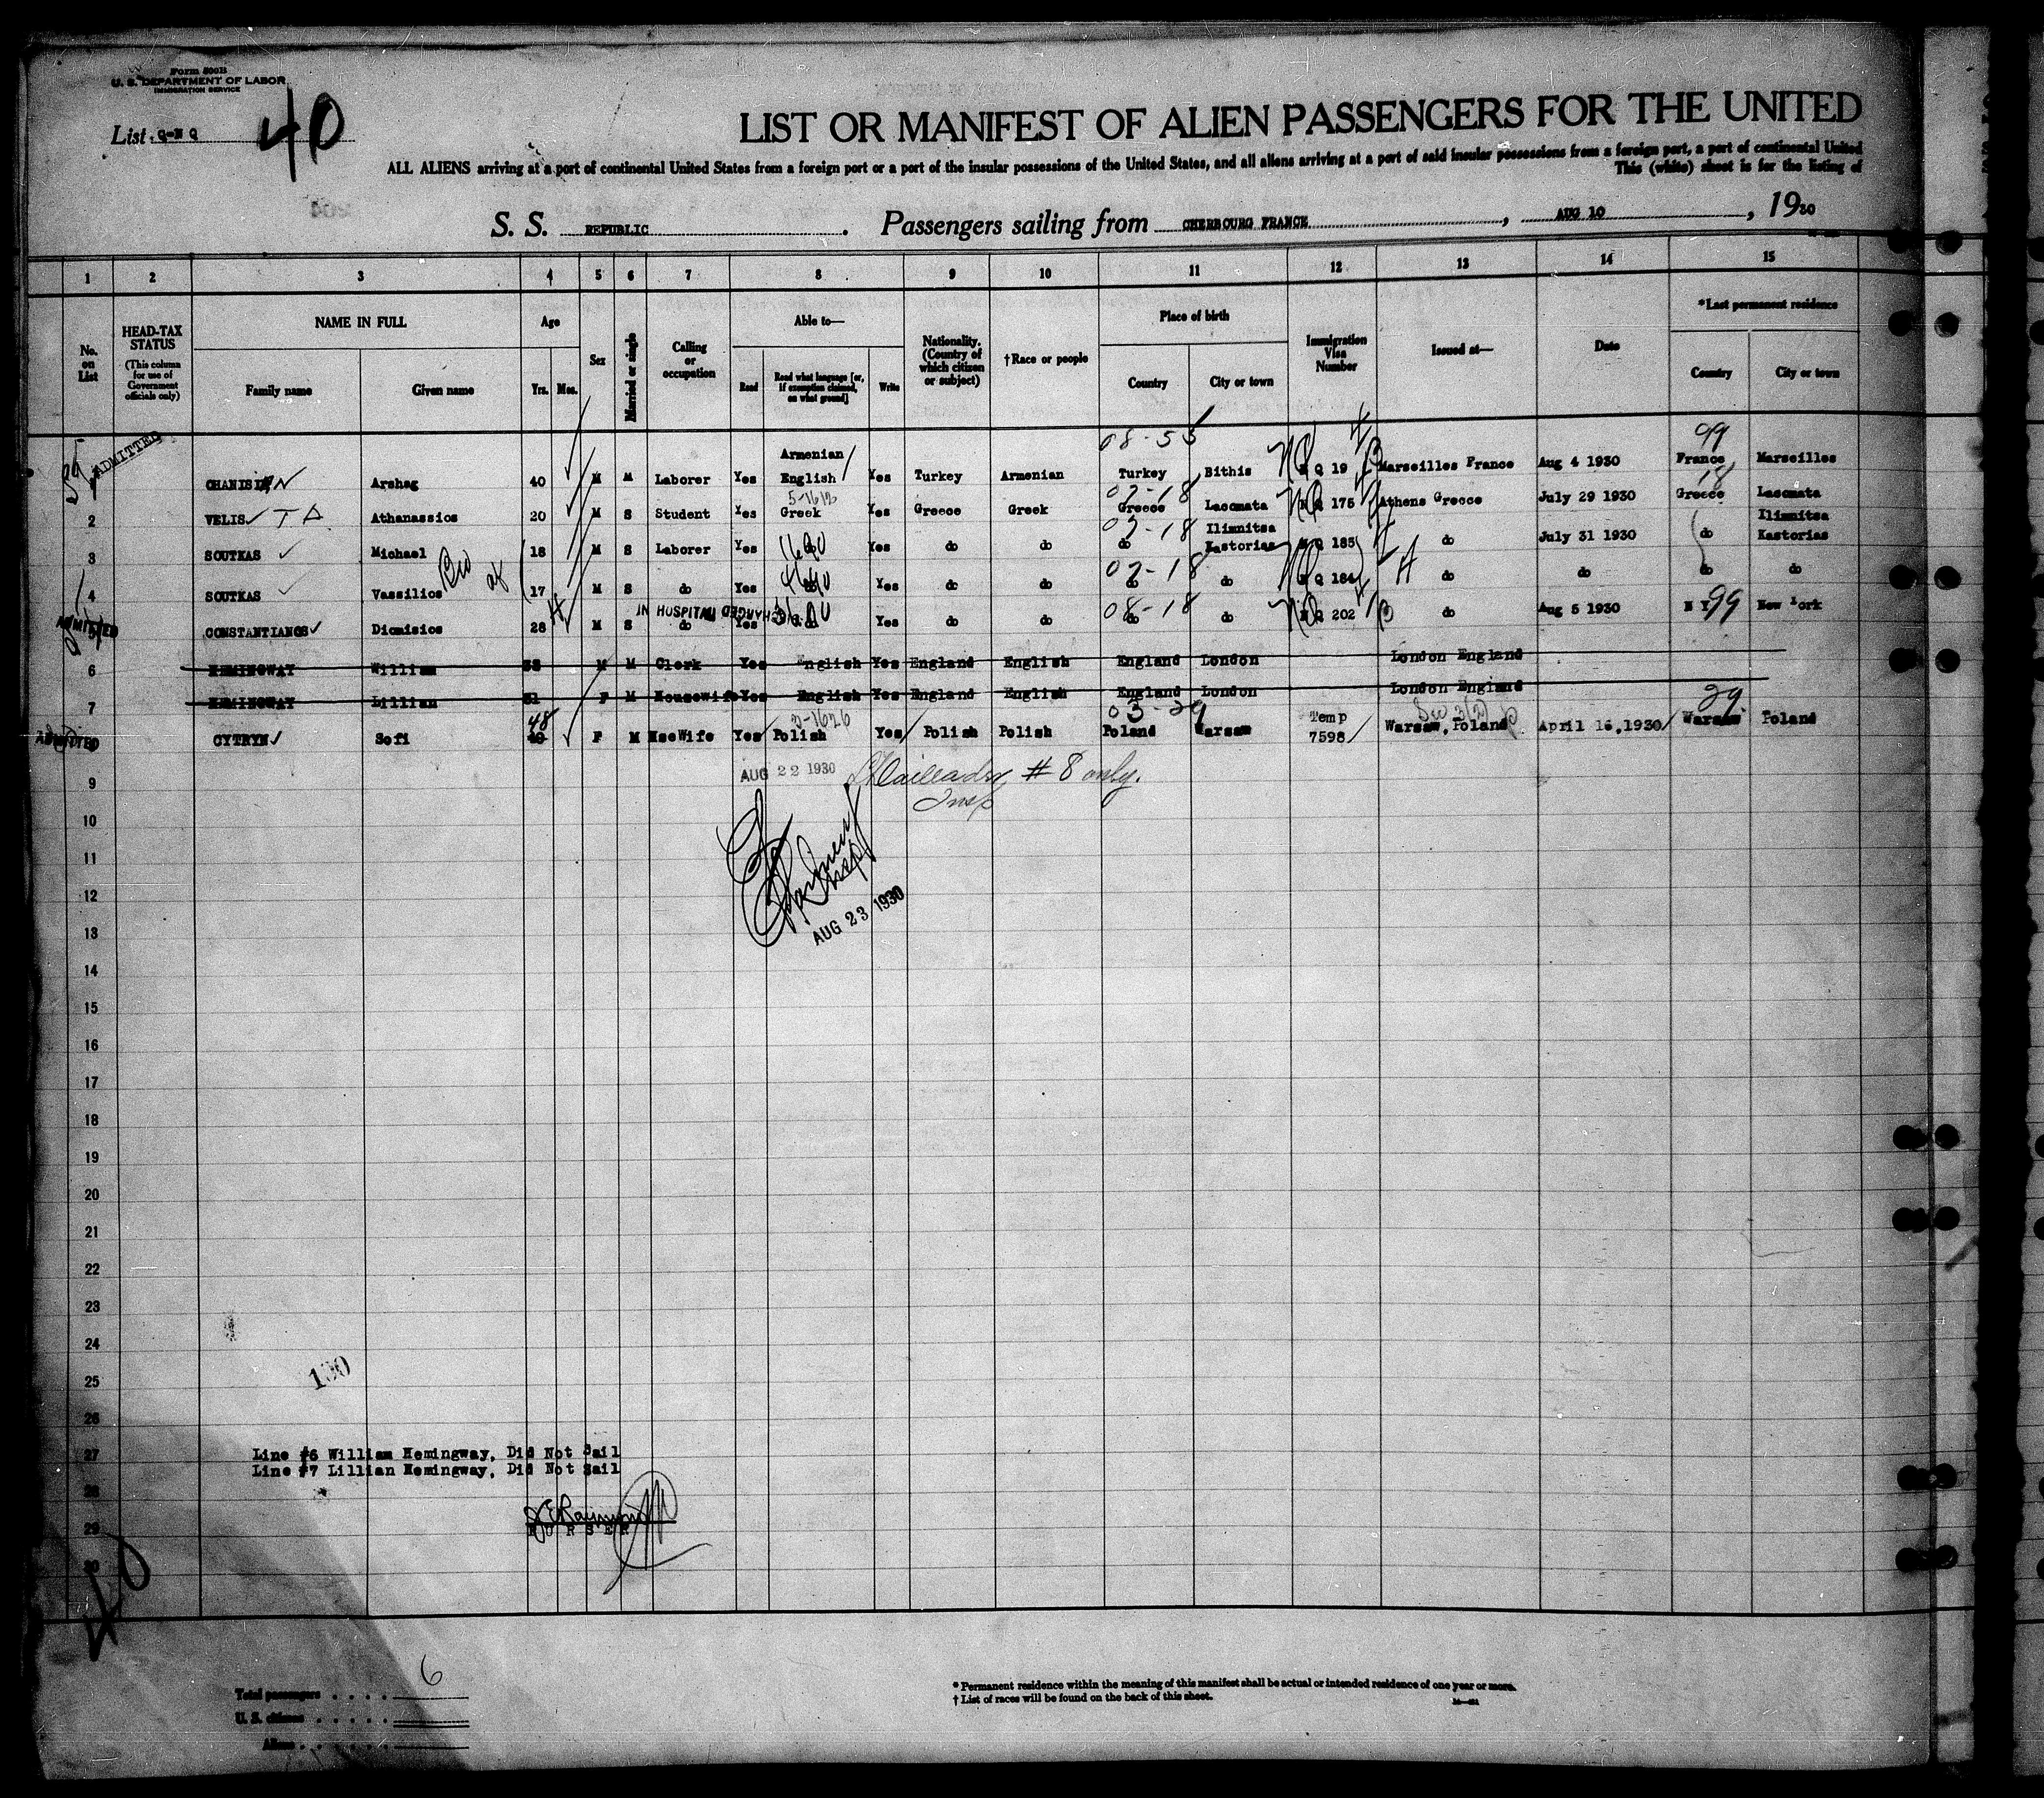 Form 500B
U. S. DEPARTMENT OF LABOR
IMMIGRATION SERVICE
List Q-N Q 40
LIST OR MANIFEST OF ALIEN PASSENGERS FOR THE UNITED
ALL ALIENS arriving at a port of continental United States from a foreign port or a part of the insular possessions of the United States, and all aliens arriving at a port of said insular possessions from a foreign port, a part of continental United
This (white) sheet is for the listing of
S. S. REPUBLIC . Passengers sailing from CHERBOURG FRANCE , AUG 10 , 1930
1 2 3 4 5 6 7 8 9 10 11 12 13 14 15
No. on List
HEAD-TAX STATUS (This column for use of Government officials only)
NAME IN FULL Family name Given name
Age Yrs. Mos.
Sex
Married or single
Calling or occupation
Able to— Read Read what language [or, if exemption claimed, on what ground] Write
Nationality. (Country of which citizen or subject)
†Race or people
Place of birth Country City or town
Immigration Visa Number
Issued at—
Date
*Last permanent residence Country City or town
ADMITTED 08-55 99
1 Arshag 40 M M Laborer Yes Armenian English Yes Turkey Armenian Turkey Bithis N Q 19 Marseilles France Aug 4 1930 France Marseilles
5-1612 07-18 18
2 VELIS T A Athanassios 20 M S Student Yes Greek Yes Greece Greek Greece Lacomata N Q 175 Athens Greece July 29 1930 Greece Lacomata
07-18
3 SOUTKAS Michael 18 M S Laborer Yes Yes do do do Ilimnitsa Kastorias N Q 185 do July 31 1930 do Ilimnitsa Kastorias
07-18
4 SOUTKAS Vassilios 17 M S do Yes do Yes do do do do N Q 184 do do do do
IN HOSPITAL DISCHARGED 08-18 99
ADMITTED CONSTANTIANOS Dionisios 28 M S do Yes do Yes do do do do N Q 202 do Aug 5 1930 N Y New York
6 HEMINGWAY William M M Clerk Yes English Yes England English England London London England
7 HEMINGWAY Lillian 31 F M Housewife Yes English Yes England English England London London England
48 03-29 29
ADMITTED CYTRYN Sofi 40 F M HseWife Yes Polish Yes Polish Polish Poland Warsaw Temp 7598 Warsaw, Poland April 16, 1930 Warsaw Poland
9 AUG 22 1930 #8 only.
Insp
10
11
12
AUG 23 1930
13
14
15
16
17
18
19
20
21
22
23
24
25
26
27 Line #6 William Hemingway, Did Not Sail
Line #7 Lillian Hemingway, Did Not Sail
28
29 PURSER
30
40
Total passengers . . . . 6
U. S. citizens . . . . .
Aliens . . . . . .
* Permanent residence within the meaning of this manifest shall be actual or intended residence of one year or more.
† List of races will be found on the back of this sheet.